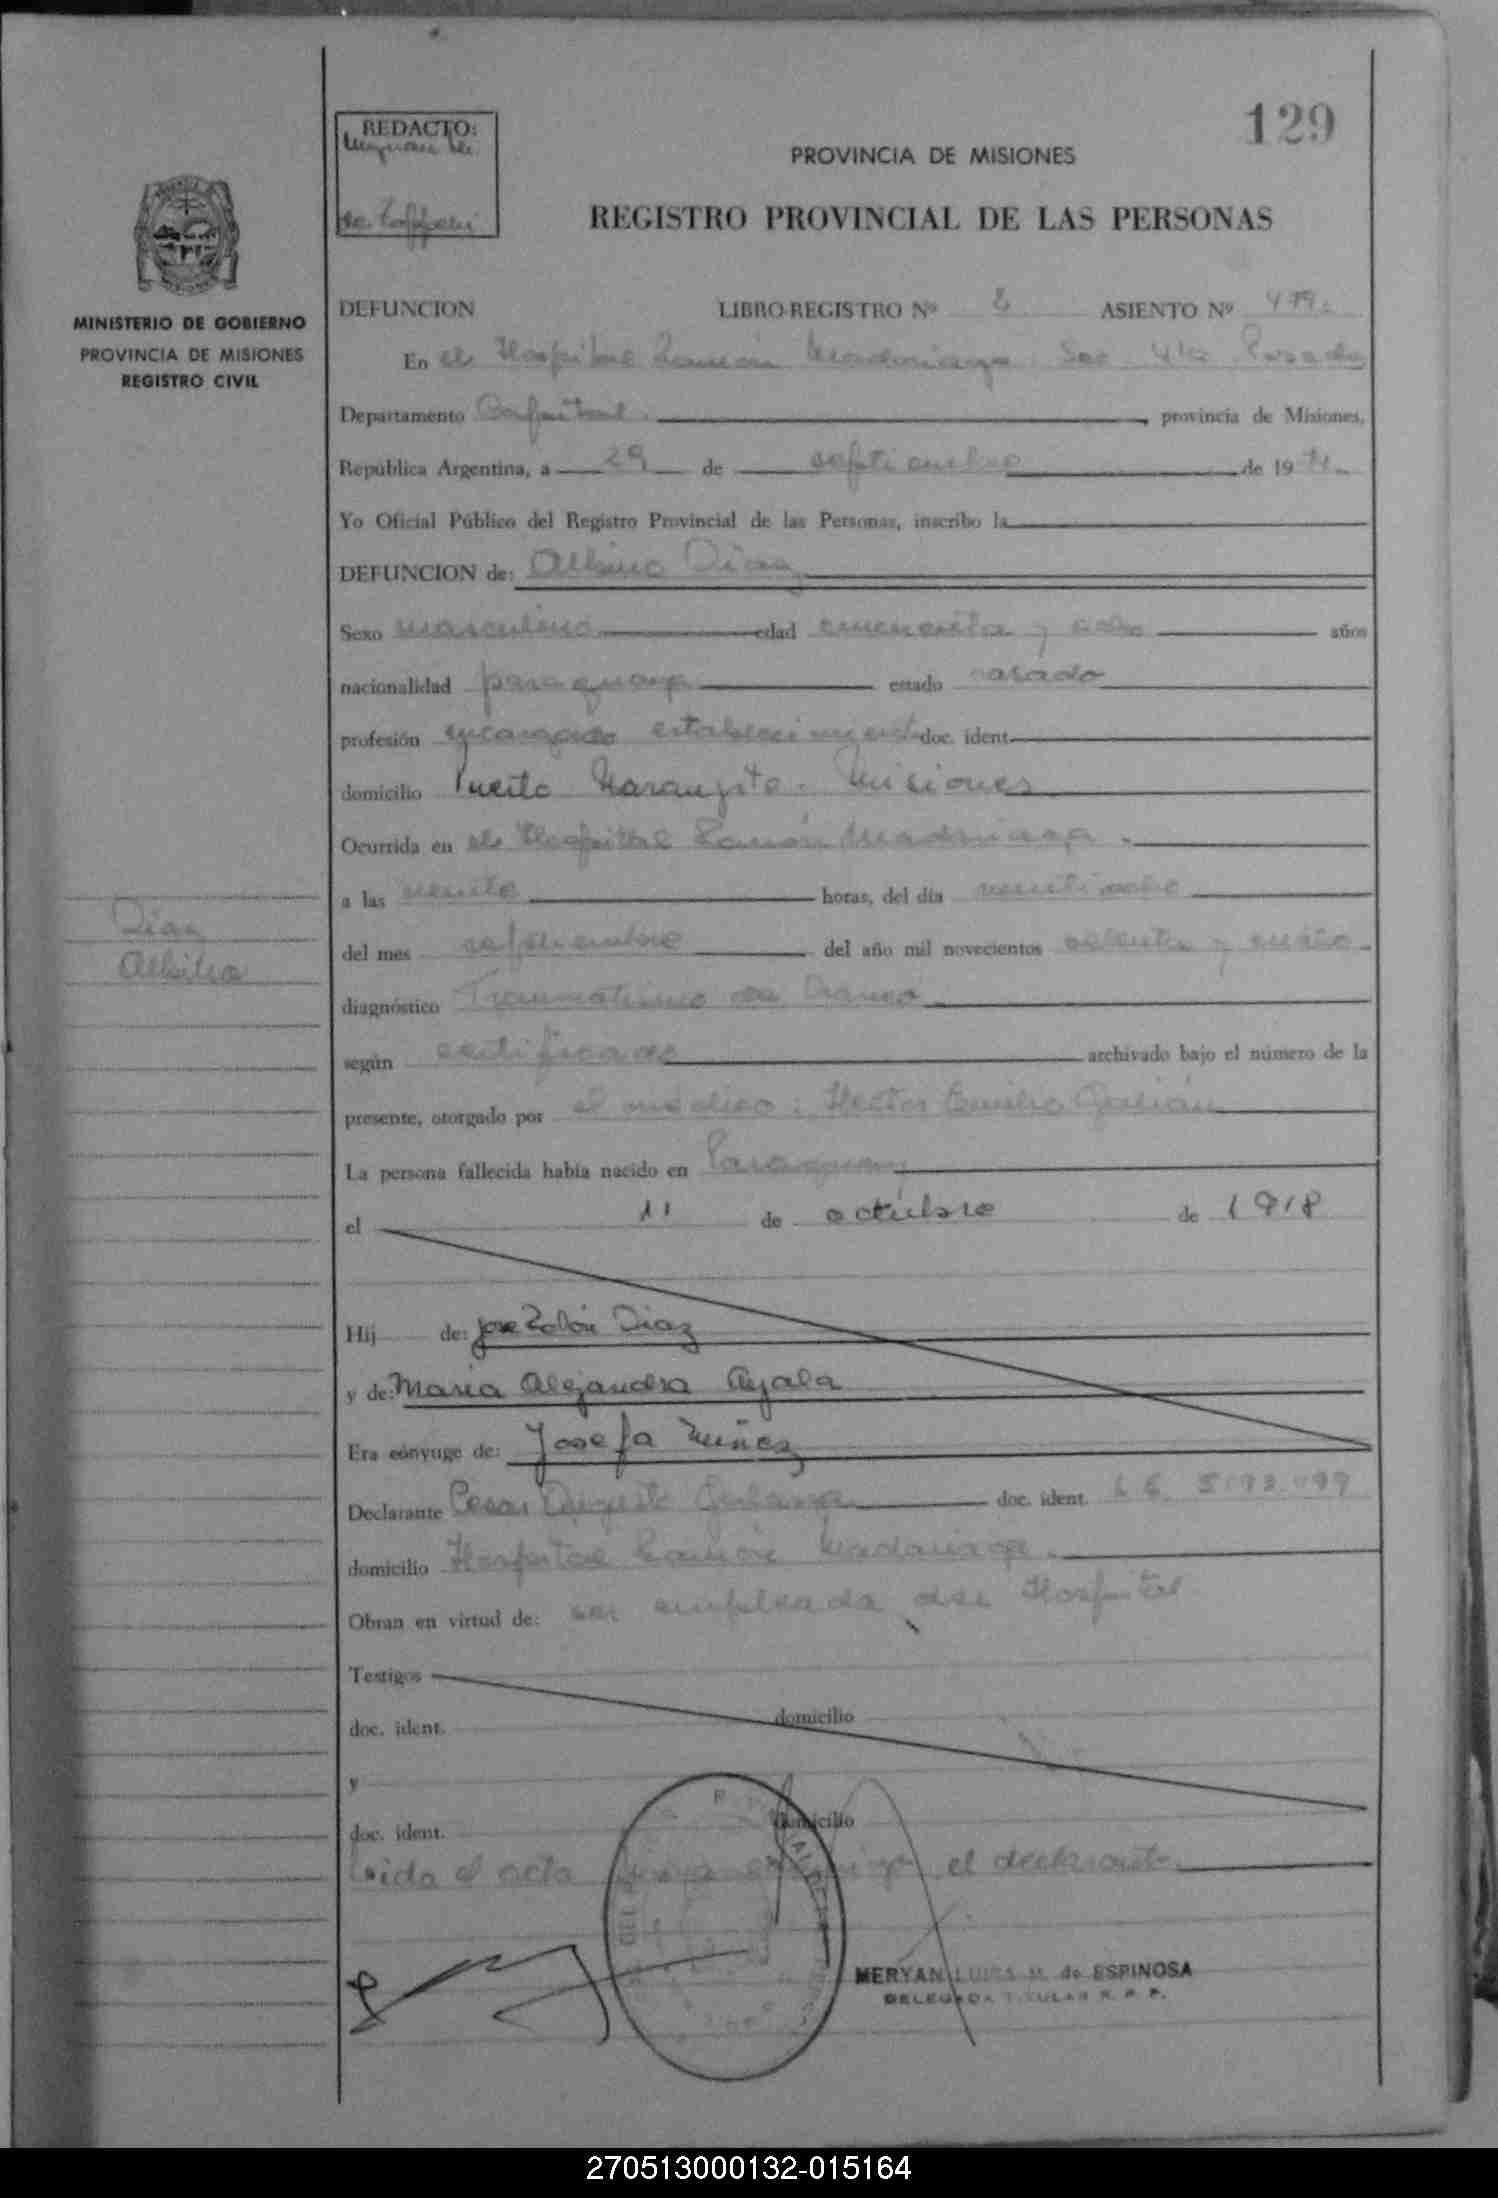 129
REDACTO:
PROVINCIA DE MISIONES
REGISTRO PROVINCIAL DE LAS PERSONAS
MINISTERIO DE GOBIERNO
PROVINCIA DE MISIONES
REGISTRO CIVIL
DEFUNCION LIBRO-REGISTRO Nº 2 ASIENTO Nº 479
En el Hospital Ramón Madariaga. Sec 4ta Posadas
Departamento Capital. , provincia de Misiones,
República Argentina, a 29 de septiembre de 19
Yo Oficial Público del Registro Provincial de las Personas, inscribo la
DEFUNCION de: Albino Diaz
Sexo masculino edad cincuenta y ocho años
nacionalidad paraguaya estado casado
profesión encargado establecimiento doc. ident.
domicilio Puerto Naranjito. Misiones
Ocurrida en el Hospital Ramón Madariaga.
a las veinte horas, del día veintiocho
Diaz
Albino
del mes septiembre del año mil novecientos setenta y
diagnóstico Traumatismo de Craneo
según certificado archivado bajo el número de la
presente, otorgado por el médico: Hector Emilio
La persona fallecida había nacido en Paraguay
el 11 de octubre de 1918
Hij de: Jose Diaz
y de: Maria Alejandra Ayala
Era cónyuge de: Josefa Nuñez
Declarante Cesar Augusto doc. ident. L E
domicilio Hospital Ramón Madariaga.
Obran en virtud de: ser empleada del Hospital
Testigos
doc. ident. domicilio
y
doc. ident. domicilio
Leida el acta el declarante
MERYAN LUISA M. de ESPINOSA
DELEGADA TITULAR R. P. P.
270513000132-015164